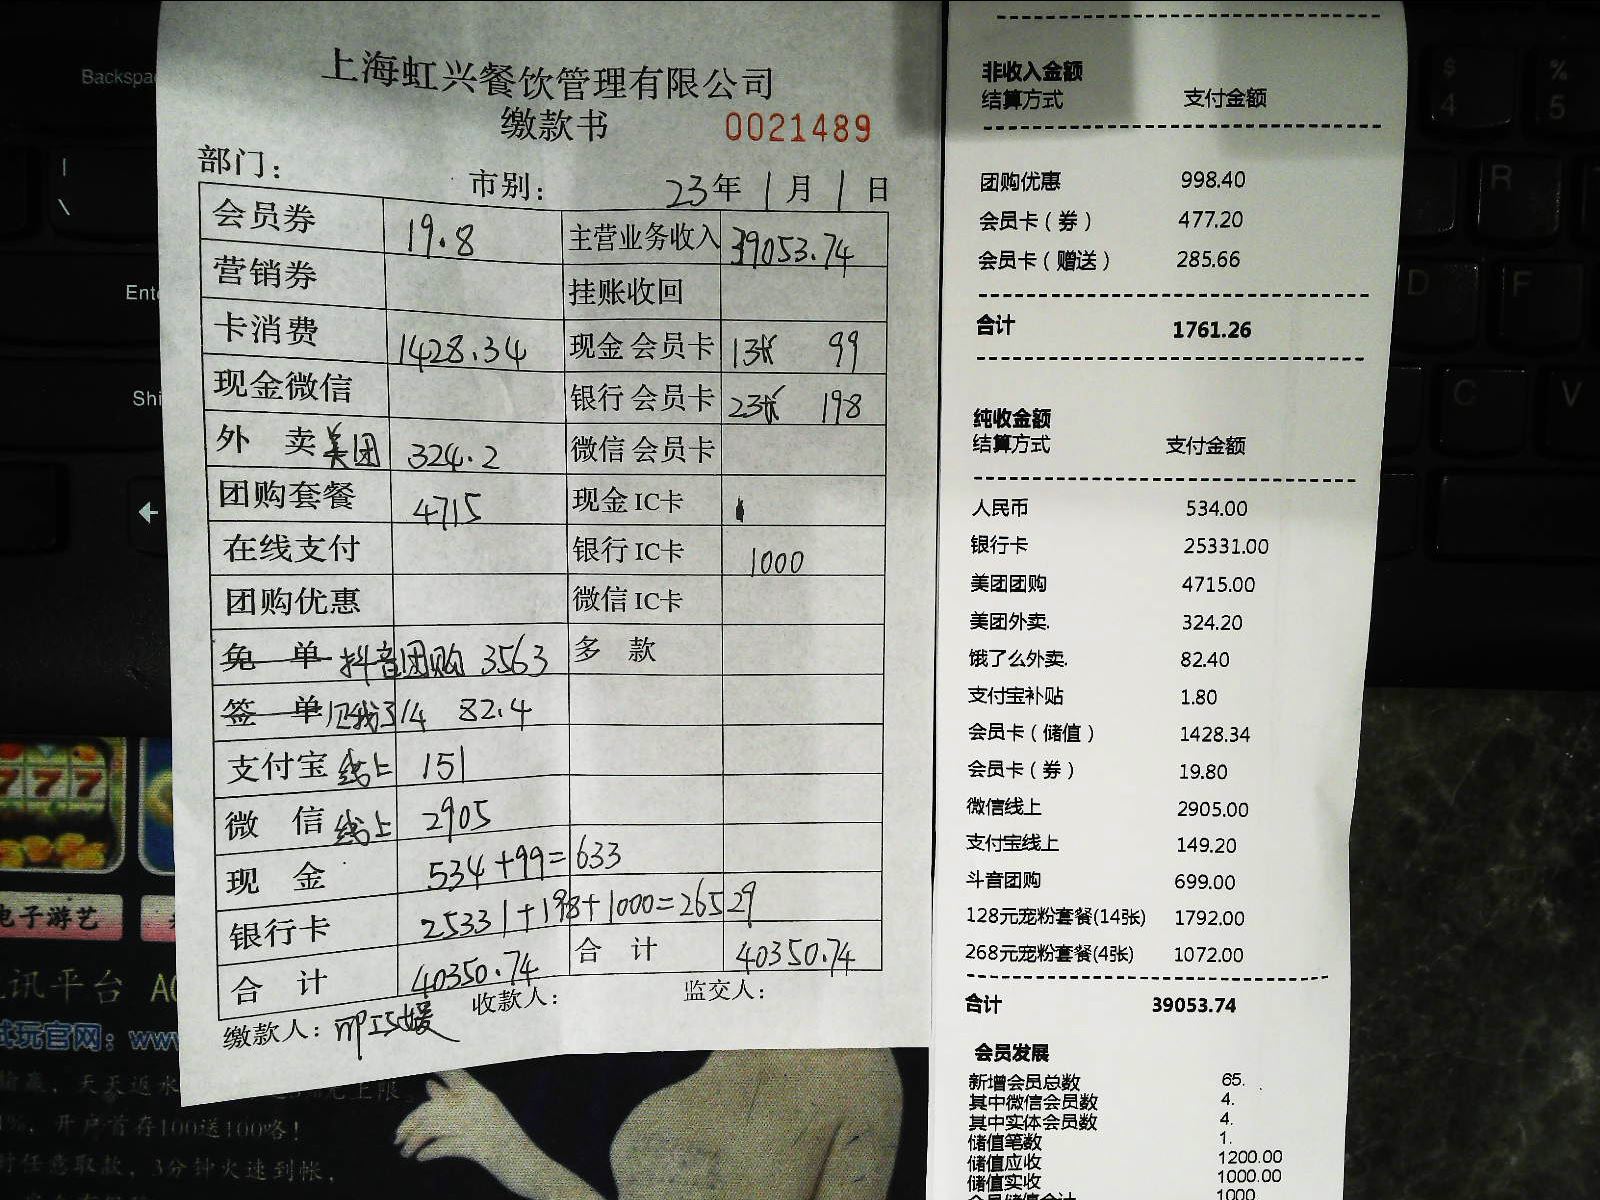 上海虹兴餐饮管理有限公司
缴款书 0021489
部门: 市别: 23年 1月 1日
会员券 19.8 主营业务收入 39053.74
营销券 挂账收回
卡消费 1428.34 现金会员卡 13张 99
现金微信 银行会员卡 23张 198
外 卖 美团 324.2 微信会员卡
团购套餐 4715 现金IC卡
在线支付 银行IC卡 1000
团购优惠 微信IC卡
免 单 抖音团购 3563 多 款
签 单 82.4
支付宝 线上 151
微 信 线上 2905
现 金 534+99=633
银行卡 25331+198+1000=26529
合 计 40350.74 合 计 40350.74
缴款人: 收款人: 监交人:
非收入金额
结算方式 支付金额
团购优惠 998.40
会员卡(券) 477.20
会员卡(赠送) 285.66
合计 1761.26
纯收金额
结算方式 支付金额
人民币 534.00
银行卡 25331.00
美团团购 4715.00
美团外卖. 324.20
饿了么外卖. 82.40
支付宝补贴 1.80
会员卡(储值) 1428.34
会员卡(券) 19.80
微信线上 2905.00
支付宝线上 149.20
斗音团购 699.00
128元宠粉套餐(14张) 1792.00
268元宠粉套餐(4张) 1072.00
合计 39053.74
会员发展
新增会员总数 65.
其中微信会员数 4.
其中实体会员数 4.
储值笔数 1.
储值应收 1200.00
储值实收 1000.00
Backspa
Ente
Shi
$
4
%
5
R
D
F
C
V
777
电子游艺
讯平台
试玩官网: www
天天返水
开户首存100送100咯!
时任意取款, 3分钟火速到帐,